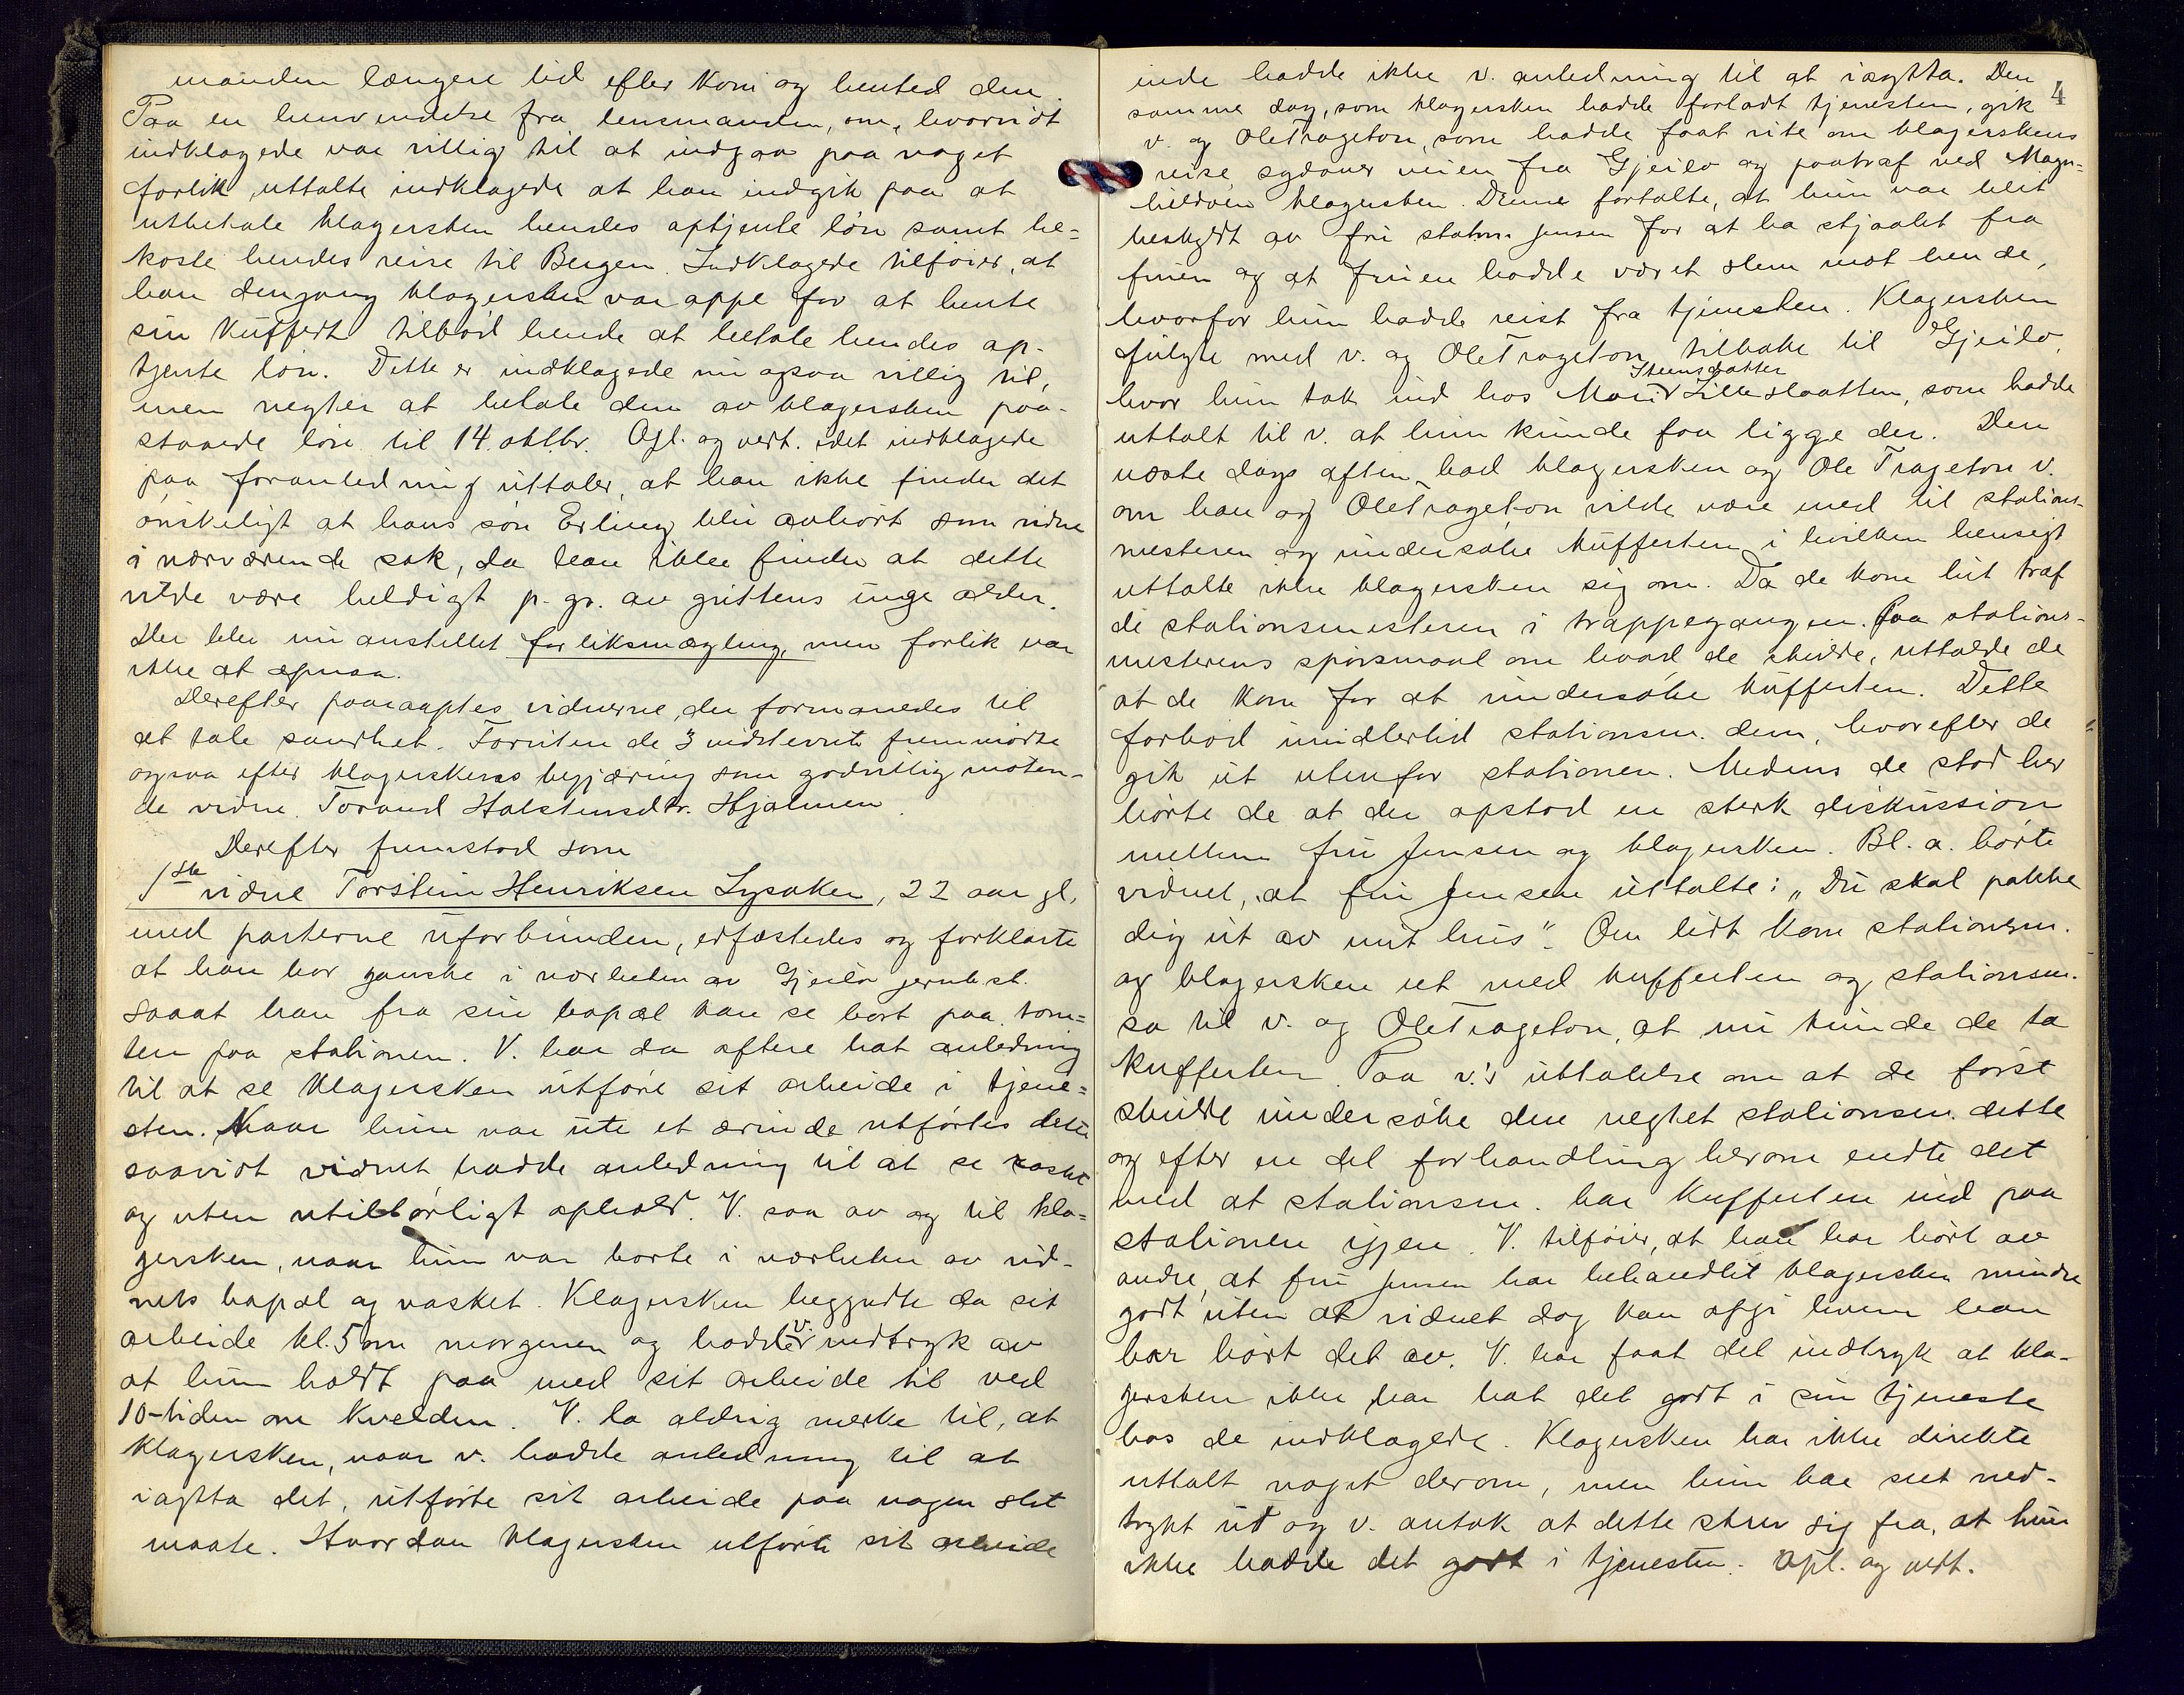 manden længere tid efter kom og hented den.
Paa en henvendelse fra lensmanden, om, hvorvidt
indklagede var villig til at indgaa paa noget
forlik uttalte indklagede at han indgik paa at
utbetale klagersken hendes optjente lön samt be=
koste hendes reise til Bergen. Indklagede tilföier, at
han dengang klagersken var oppe for at hente
sin kuffert tilböd hende at betale hendes op-
tjente lön. Dette er indklagede nu ogsaa villig til,
men negter at betale den av klagersken paa-
staaede lön til 14. oktbr. Opl. og vedt. idet indklagede
paa foranledning uttaler, at han ikke finder det
önskeligt at hans sön Erling blir avhört som vidne
i nærværende sak, da han ikke finder at dette
vilde være heldigt p. gr. av guttens unge alder.
Der blev nu anstillet forliksmægling, men forlik var
ikke at opnaa.
Derefter paaraaptes vidnerne, der formanedes til
at tale sandhet. Foruten de 3 indstevnte fremmötte
ogsaa efter klagerskens begjæring som godvillig möten-
de vidne. Torand Halstensdtr. Hjalmen.
Derefter fremstod som
1ste vidne Torstein Henriksen Lysaker, 22 aar gl.
med parterne uforbunden, edfæstedes og forklarte
at han bor ganske i nærheten av Gjeilo jernb.st.
saaat han fra sin bopæl kan se bort paa tom=
ten paa stationen. V. har da oftere hat anledning
til at se klagersken utföre sit arbeide i tjene=
sten. Naar hun var ute et ærinde utförtes dette
saavidt vidnet hadde anledning til at se raskt
og uten utilbörligt ophold. V. saa av og til kla=
gersken, naar hun var borte i nærheten av vid-
nets bopæl og vasket. Klagersken begyndte da sit
arbeide kl. 5 om morgenen og hadde v. indtryk av
at hun holdt paa med sit arbeide til ved
10-tiden om kvelden. V. la aldrig merke til, at
klagersken, naar v. hadde anledning til at
iagtta det, utförte sit arbeide paa nogen slet
maate. Hvordan klagersken utförte sit arbeide
4
inde hadde ikke v. anledning til at iagtta. Den
samme dag, som klagersken hadde forladt tjenesten, gik
v. og Ole Trageton, som hadde faat vite om klagerskens
reise sydover veien fra Gjeilo og paatraf ved
klagersken. Denne fortalte, at hun var blit
beskyldt av fru statm. Jensen for at ha stjaalet fra
fruen og at Fruen hadde været slem mot hende,
hvorfor hun hadde reist fra tjenesten. Klagersken
fulgte med v. og Ole Trageton tilbake til Gjeilo,
Steensdatter
hvor hun tok ind hos Mari Lilleslaatten, som hadde
uttalt til v. at hun kunde faa ligge der. Den
næste dags aften bad klagersken og Ole Trageton v.
om han og Ole Trageton vilde være med til stations-
mesteren og undersöke kufferten, i hvilken hensigt
uttalte ikke klagersken sig om. Da de kom hit traf
de stationsmesteren i trappegangen. Paa stations-
mesterens spörsmaal om hvad de skulde, uttalde de
at de kom for at undersöke kufferten. Dette
forböd imidlertid stationsm. dem, hvorefter de
gik ut utenfor stationen. Medens de stod her
hörte de at der opstod en sterk diskussion
mellem fru Jensen og klagersken. Bl. a. hörte
vidnet, at fru Jensen uttalte: „Du skal pakke
dig ut av mit hus". Om lidt kom stationsm.
og klagersken ut med kufferten og stationsm.
sa til v. og Ole Trageton, at nu kunde de ta
kufferten. Paa v.'s uttalelse om at de först
skulde undersöke den negtet stationsm. dette
og efter en del forhandling herom endte det
med at stationsm. bar kufferten ind paa
stationen igjen. V. tilföier, at han har hört av
andre, at fru Jensen har behandlet klagersken mindre
godt uten at vidnet dog kan opgi hvem han
har hört det av. V. har faat det indtryk at kla-
gersken ikke har hat det godt i sin tjeneste
hos de indklagede. Klagersken har ikke direkte
uttalt noget derom, men hun har set ned-
trykt ut og v. antok at dette skrev sig fra, at hun
ikke hadde det godt i tjenesten. Opl. og vedt.